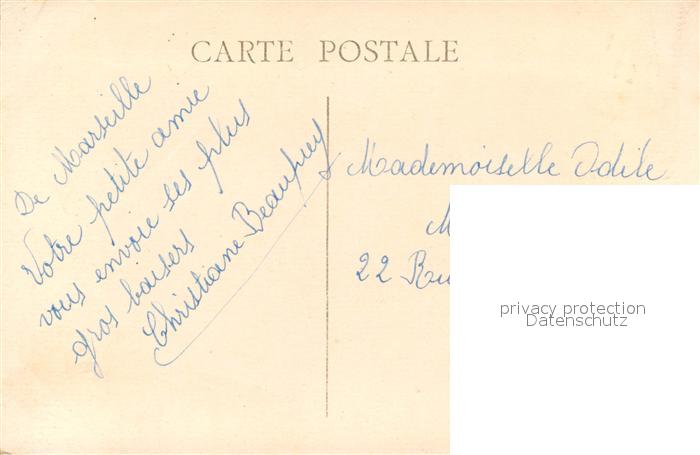 CARTE POSTALE
De Marseille
Votre petite amie
vous envoie ses plus
gros baisers
Christiane Beaupuy
Mademoiselle Odile
M
22 Ru
privacy protection
Datenschutz